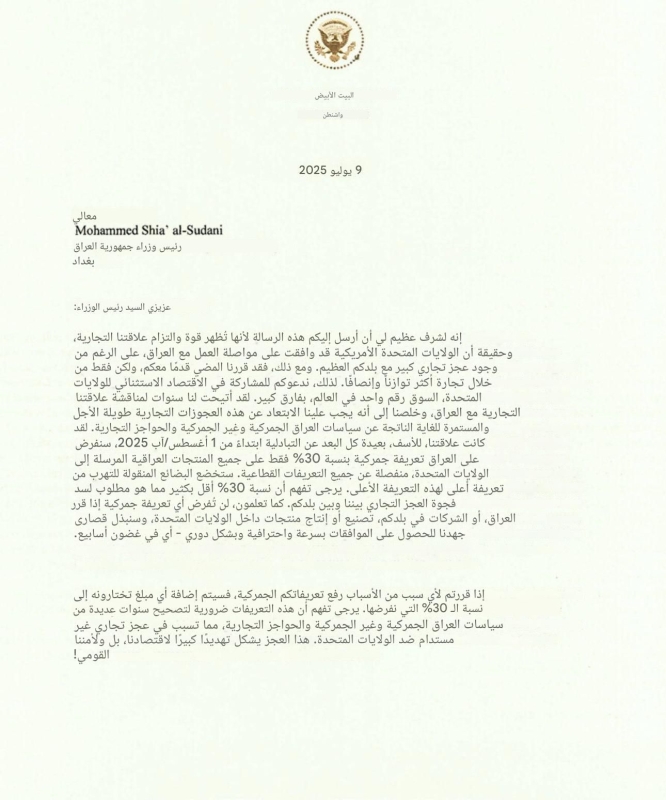 البيت الأبيض
واشنطن
9 يوليو 2025
معالي
Mohammed Shia` al-Sudani
رئيس وزراء جمهورية العراق
بغداد
عزيزي السيد رئيس الوزراء:
إنه لشرف عظيم لي أن أرسل إليكم هذه الرسالة لأنها تُظهر قوة والتزام علاقتنا التجارية،
وحقيقة أن الولايات المتحدة الأمريكية قد وافقت على مواصلة العمل مع العراق، على الرغم من
وجود عجز تجاري كبير مع بلدكم العظيم. ومع ذلك، فقد قررنا المضي قدمًا معكم، ولكن فقط من
خلال تجارة أكثر توازناً وإنصافًا. لذلك، ندعوكم للمشاركة في الاقتصاد الاستثنائي للولايات
المتحدة، السوق رقم واحد في العالم، بفارق كبير. لقد أتيحت لنا سنوات لمناقشة علاقتنا
التجارية مع العراق، وخلصنا إلى أنه يجب علينا الابتعاد عن هذه العجوزات التجارية طويلة الأجل
والمستمرة للغاية الناتجة عن سياسات العراق الجمركية وغير الجمركية والحواجز التجارية. لقد
كانت علاقتنا، للأسف، بعيدة كل البعد عن التبادلية ابتداءً من 1 أغسطس/آب 2025، سنفرض
على العراق تعريفة جمركية بنسبة 30% فقط على جميع المنتجات العراقية المرسلة إلى
الولايات المتحدة، منفصلة عن جميع التعريفات القطاعية. ستخضع البضائع المنقولة للتهرب من
تعريفة أعلى لهذه التعريفة الأعلى. يرجى تفهم أن نسبة 30% أقل بكثير مما هو مطلوب لسد
فجوة العجز التجاري بيننا وبين بلدكم. كما تعلمون، لن تُفرض أي تعريفة جمركية إذا قرر
العراق، أو الشركات في بلدكم، تصنيع أو إنتاج منتجات داخل الولايات المتحدة، وسنبذل قصارى
جهدنا للحصول على الموافقات بسرعة واحترافية وبشكل دوري - أي في غضون أسابيع.
إذا قررتم لأي سبب من الأسباب رفع تعريفاتكم الجمركية، فسيتم إضافة أي مبلغ تختارونه إلى
نسبة الـ 30% التي نفرضها. يرجى تفهم أن هذه التعريفات ضرورية لتصحيح سنوات عديدة من
سياسات العراق الجمركية وغير الجمركية والحواجز التجارية، مما تسبب في عجز تجاري غير
مستدام ضد الولايات المتحدة. هذا العجز يشكل تهديدًا كبيرًا لاقتصادنا، بل ولأمننا
القومي!